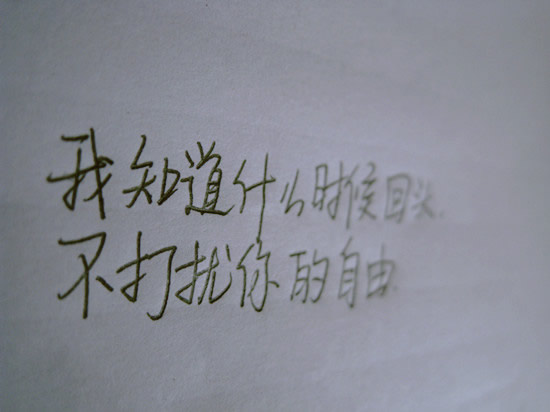 我知道什么时候回头.
不打扰你的自由.